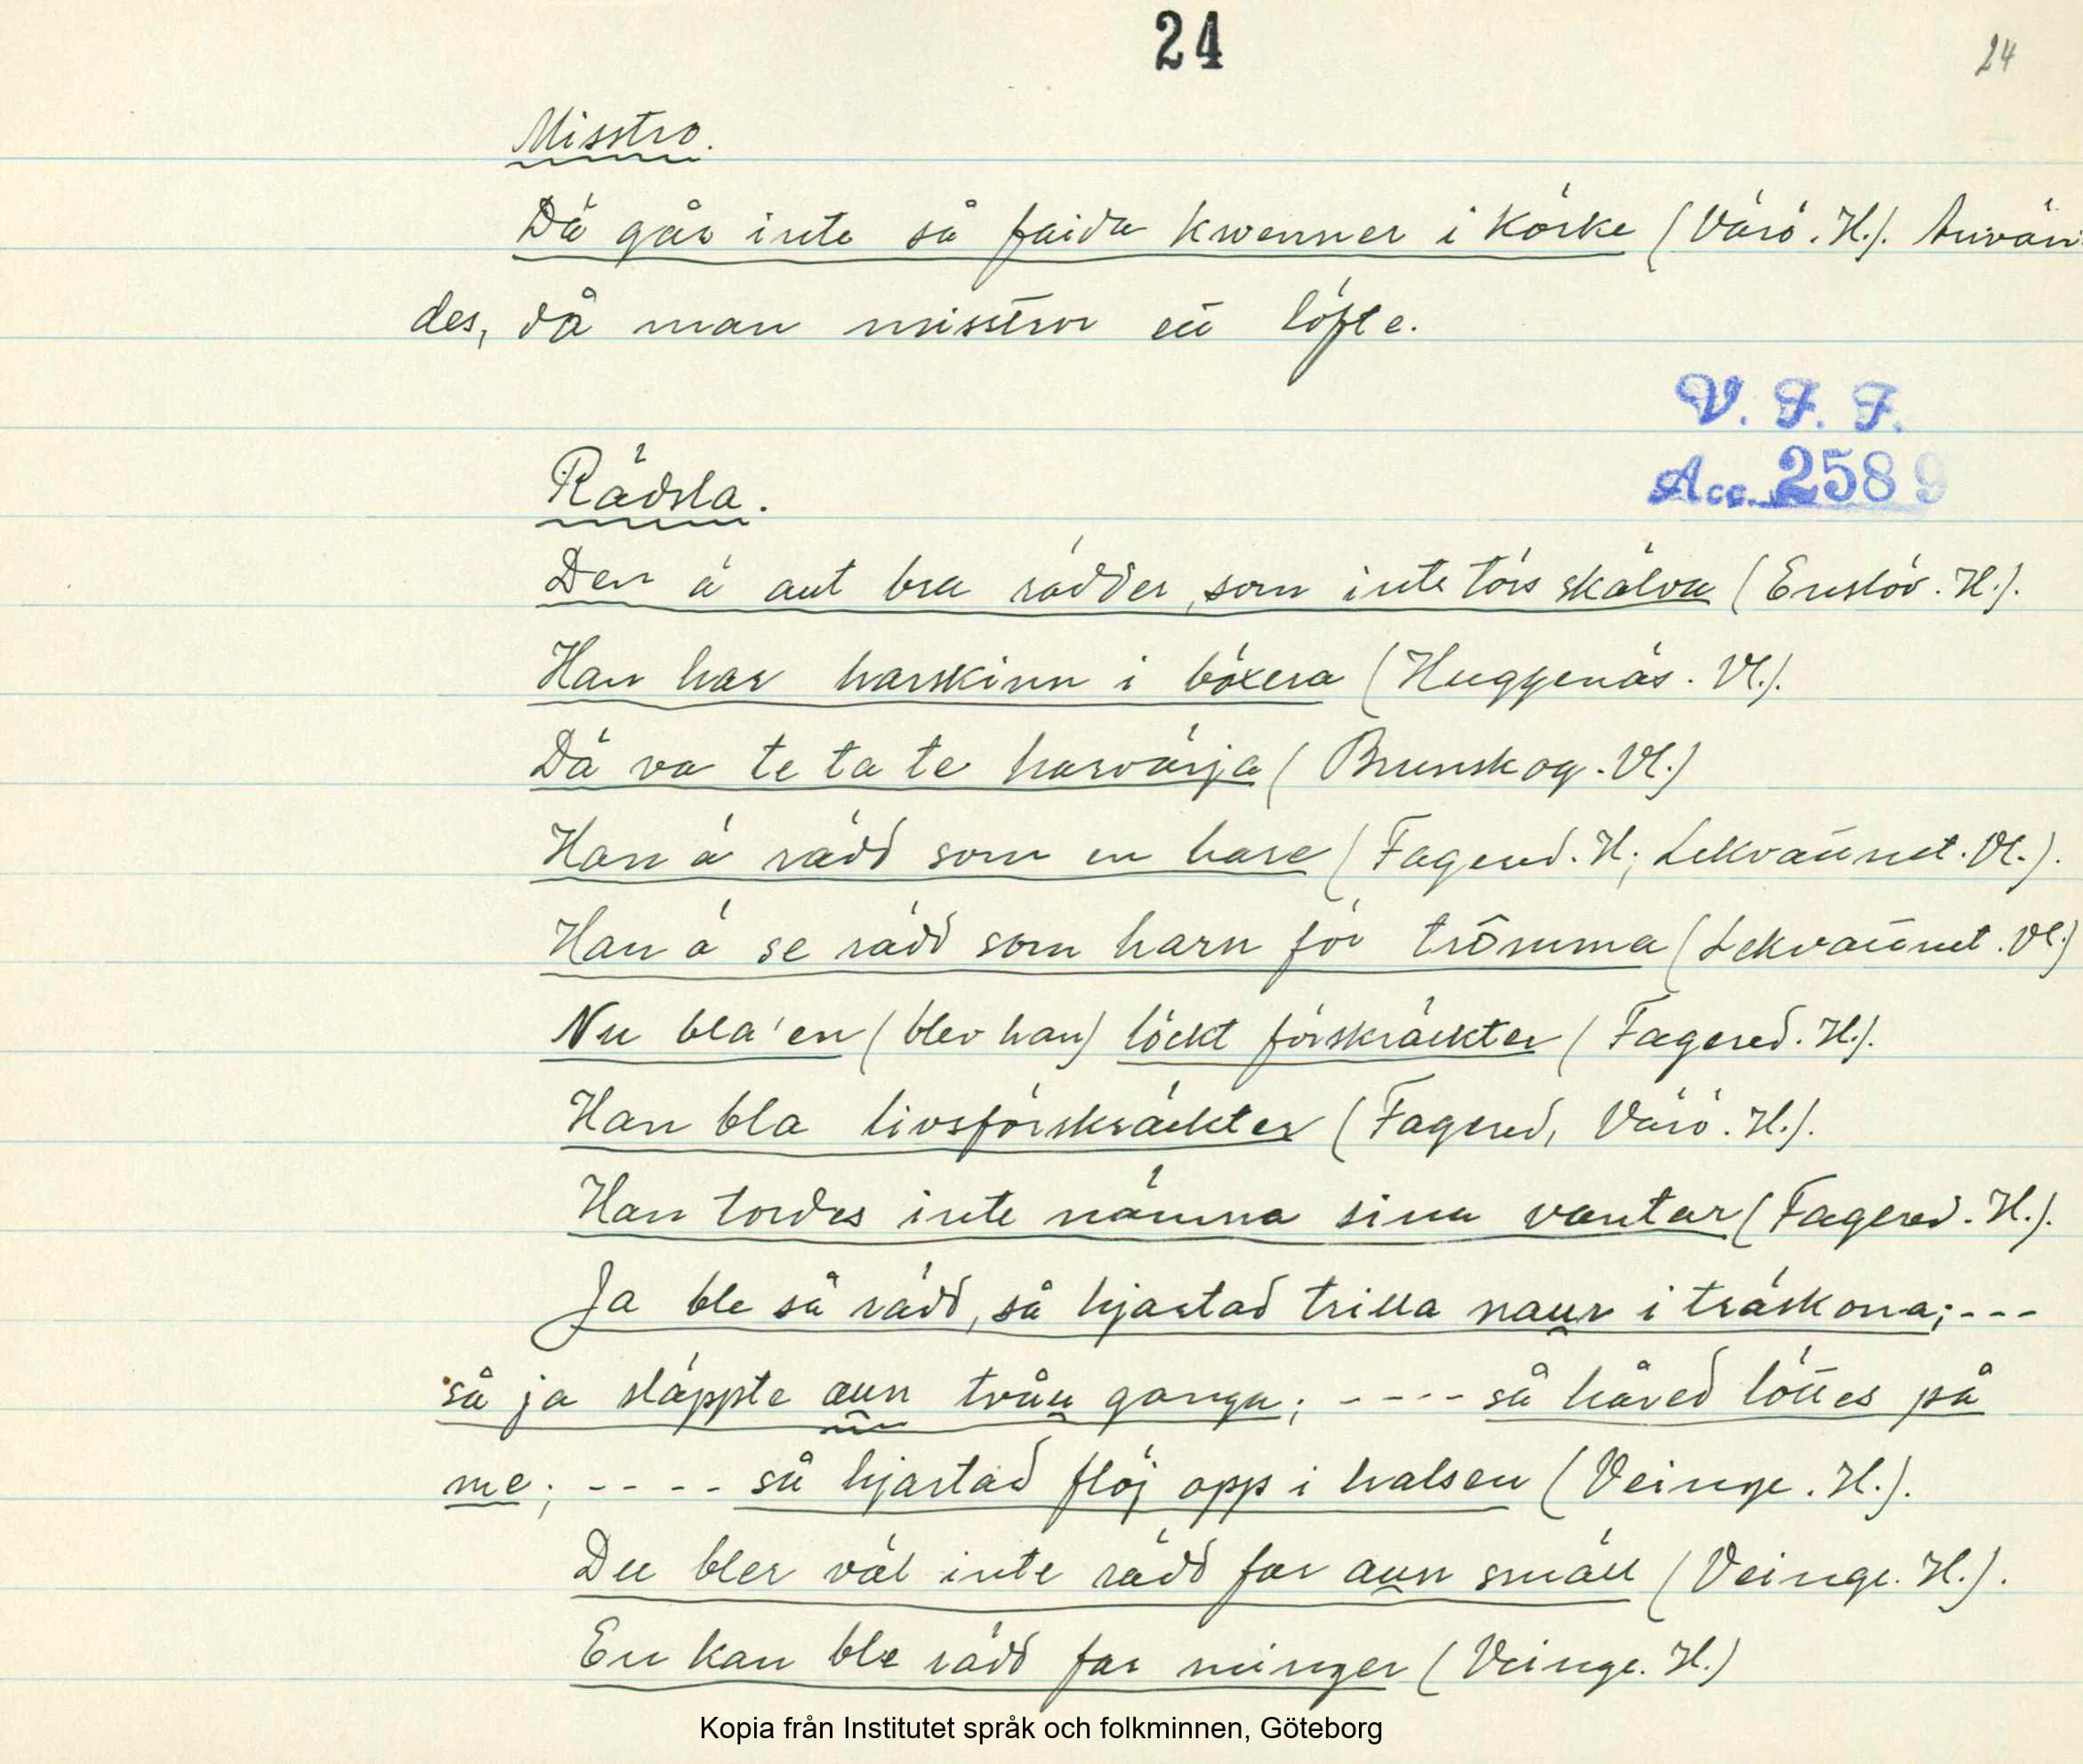 24
24
Misstro.
Dä går inte så faida kwenner i körke (Värö. H.). Använ-
des, då man misstror ett löfte.
V. F. F.
Acc. 2589
Rädsla.
Den ä aut bra rädder, som inte törs skälva (Enslöv. H.).
Han har harskinn i böxera (Huggenäs. Vl.).
Dä va te ta te harvärja (Brunskog. Vl.)
Han ä rädd som en hare (Fagered. H; Lekvattnet. Vl.).
Han ä se rädd som harn för trômma (Lekvattnet. Vl.)
Nu bla'en (blev han) löckt förskräckter (Fagered. H.).
Han bla livsförskräckter (Fagered, Värö. H.).
Han tordes inte nämna sina vantar (Fagered. H.).
Ja ble så rädd, så hjartad trilla naur i träskona; ---
så ja släppte aun tvåu ganga; ---- så håved löttes på
me; ---- så hjartad flöj opp i halsen (Veinge. H.).
Du bler väl inte rädd far aun smäll (Veinge. H.).
En kan ble rädd far minger (Veinge. H.)
Kopia från Institutet språk och folkminnen, Göteborg